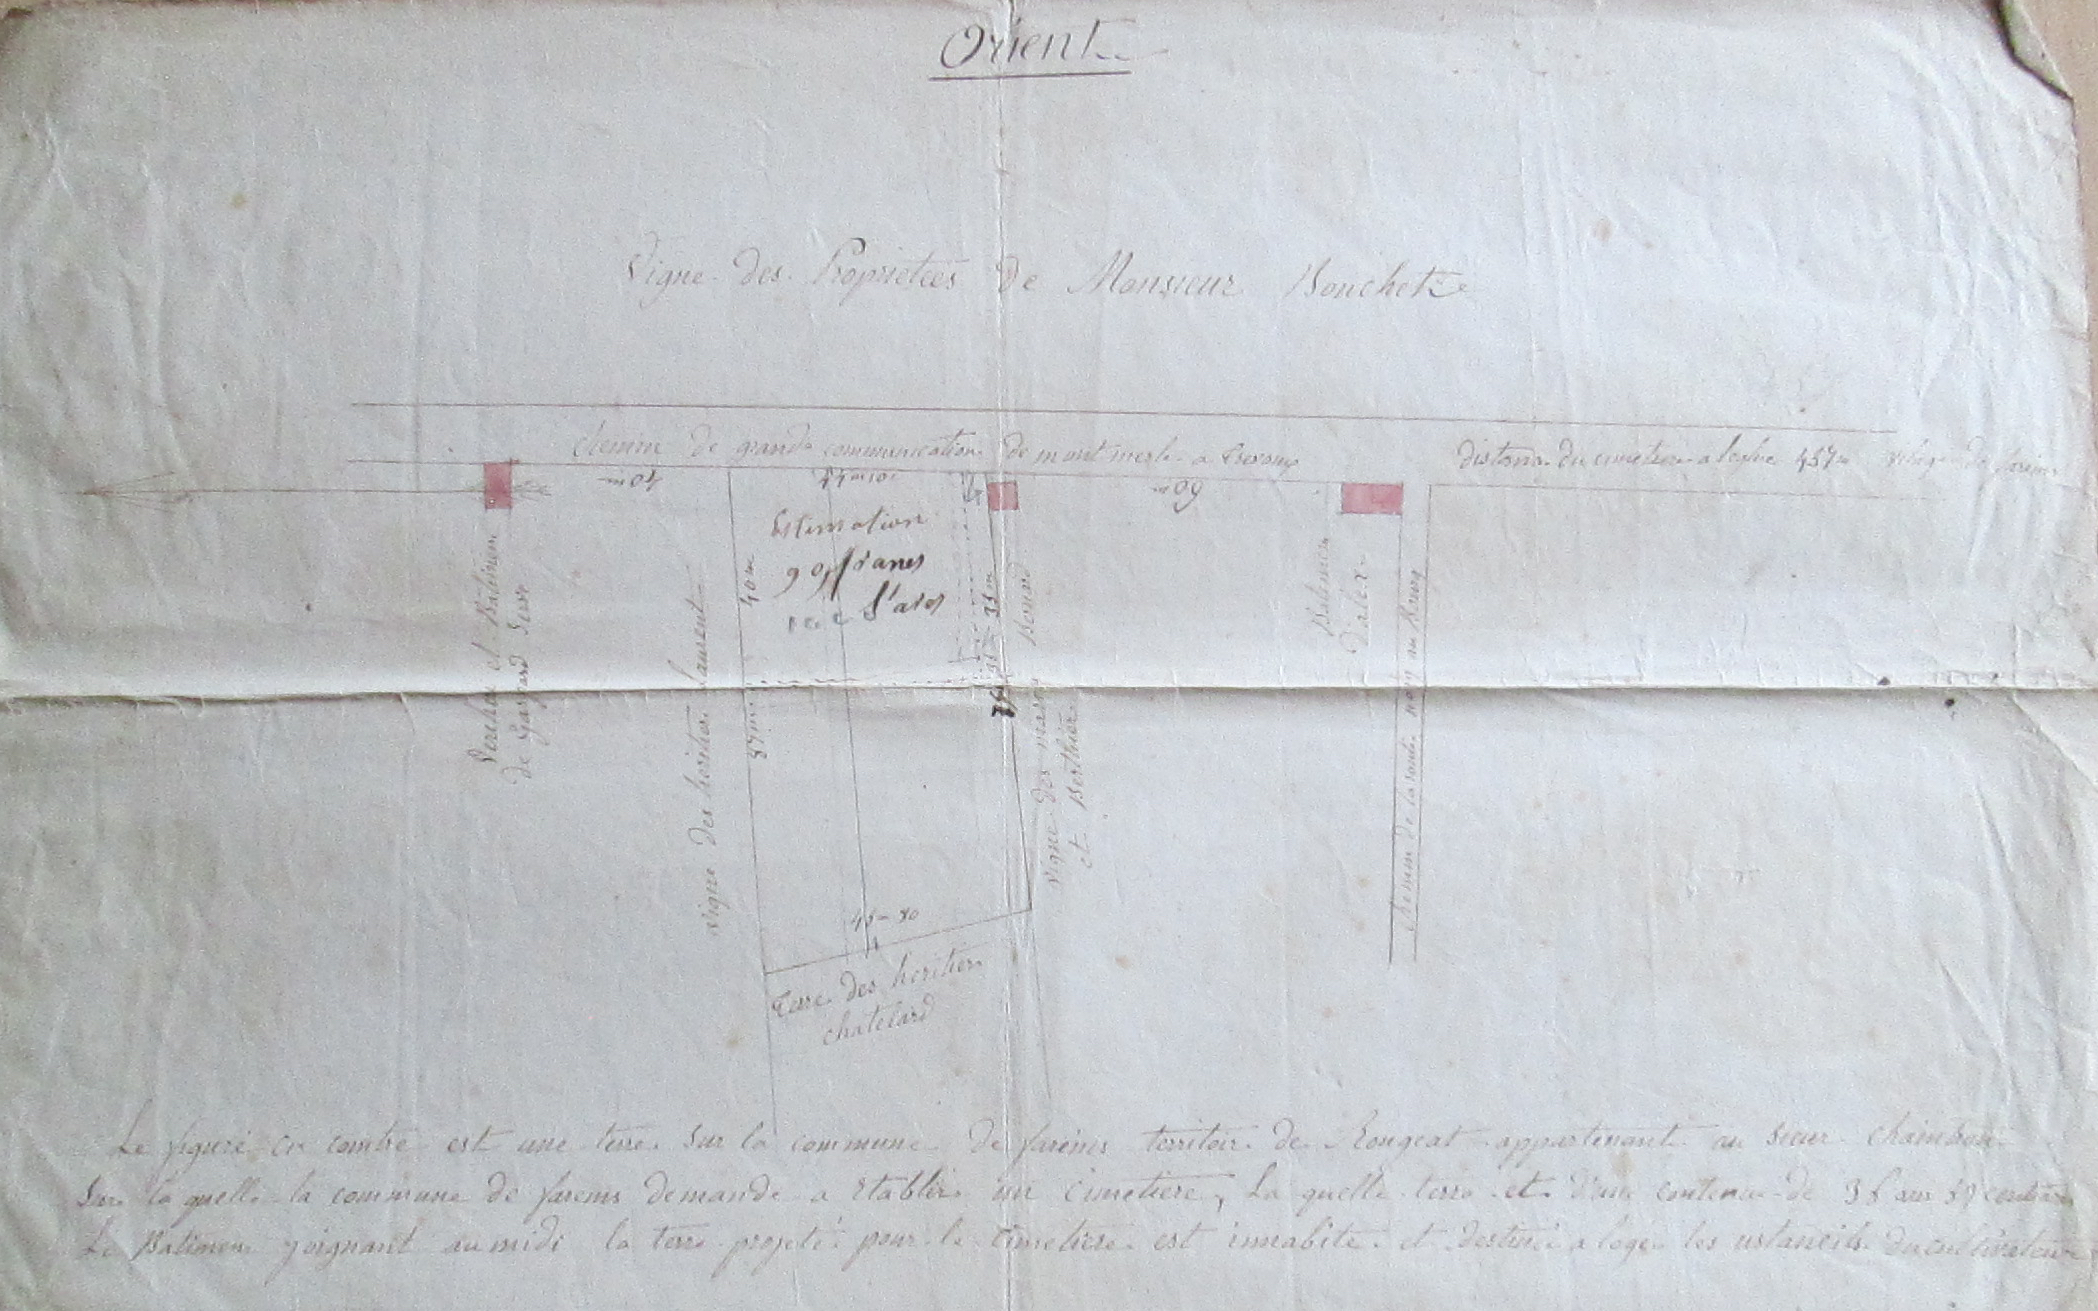 Orient
Vigne des Proprietées de Monsieur Bouchet
chemin de grande communication de montmerle a Trevoux
distance du cimetiere a leglise 457m village de fareins
40m
44m10
60m
Estimation
90 francs
l'ares
40m
57m
35m
Verchere et Batimen
de Gaspard
vigne des heritier laurent
vigne des
et Berthier
Batimen
D'alex
chemin de la
45-80
Terre des heritier
chatelard
Le figuré cu contre est une terre sur la commune de fareins territoir de Rongeat appartenant au sieur chambon
Sur la quelle la commune de fareins demande a Etablir un cimetiere, La quelle terre est d'une contenue de
Le Batimen joignant au midi la terre projeté pour le cimetiere est innabité et destiné a logé les ustancils du cultivateur